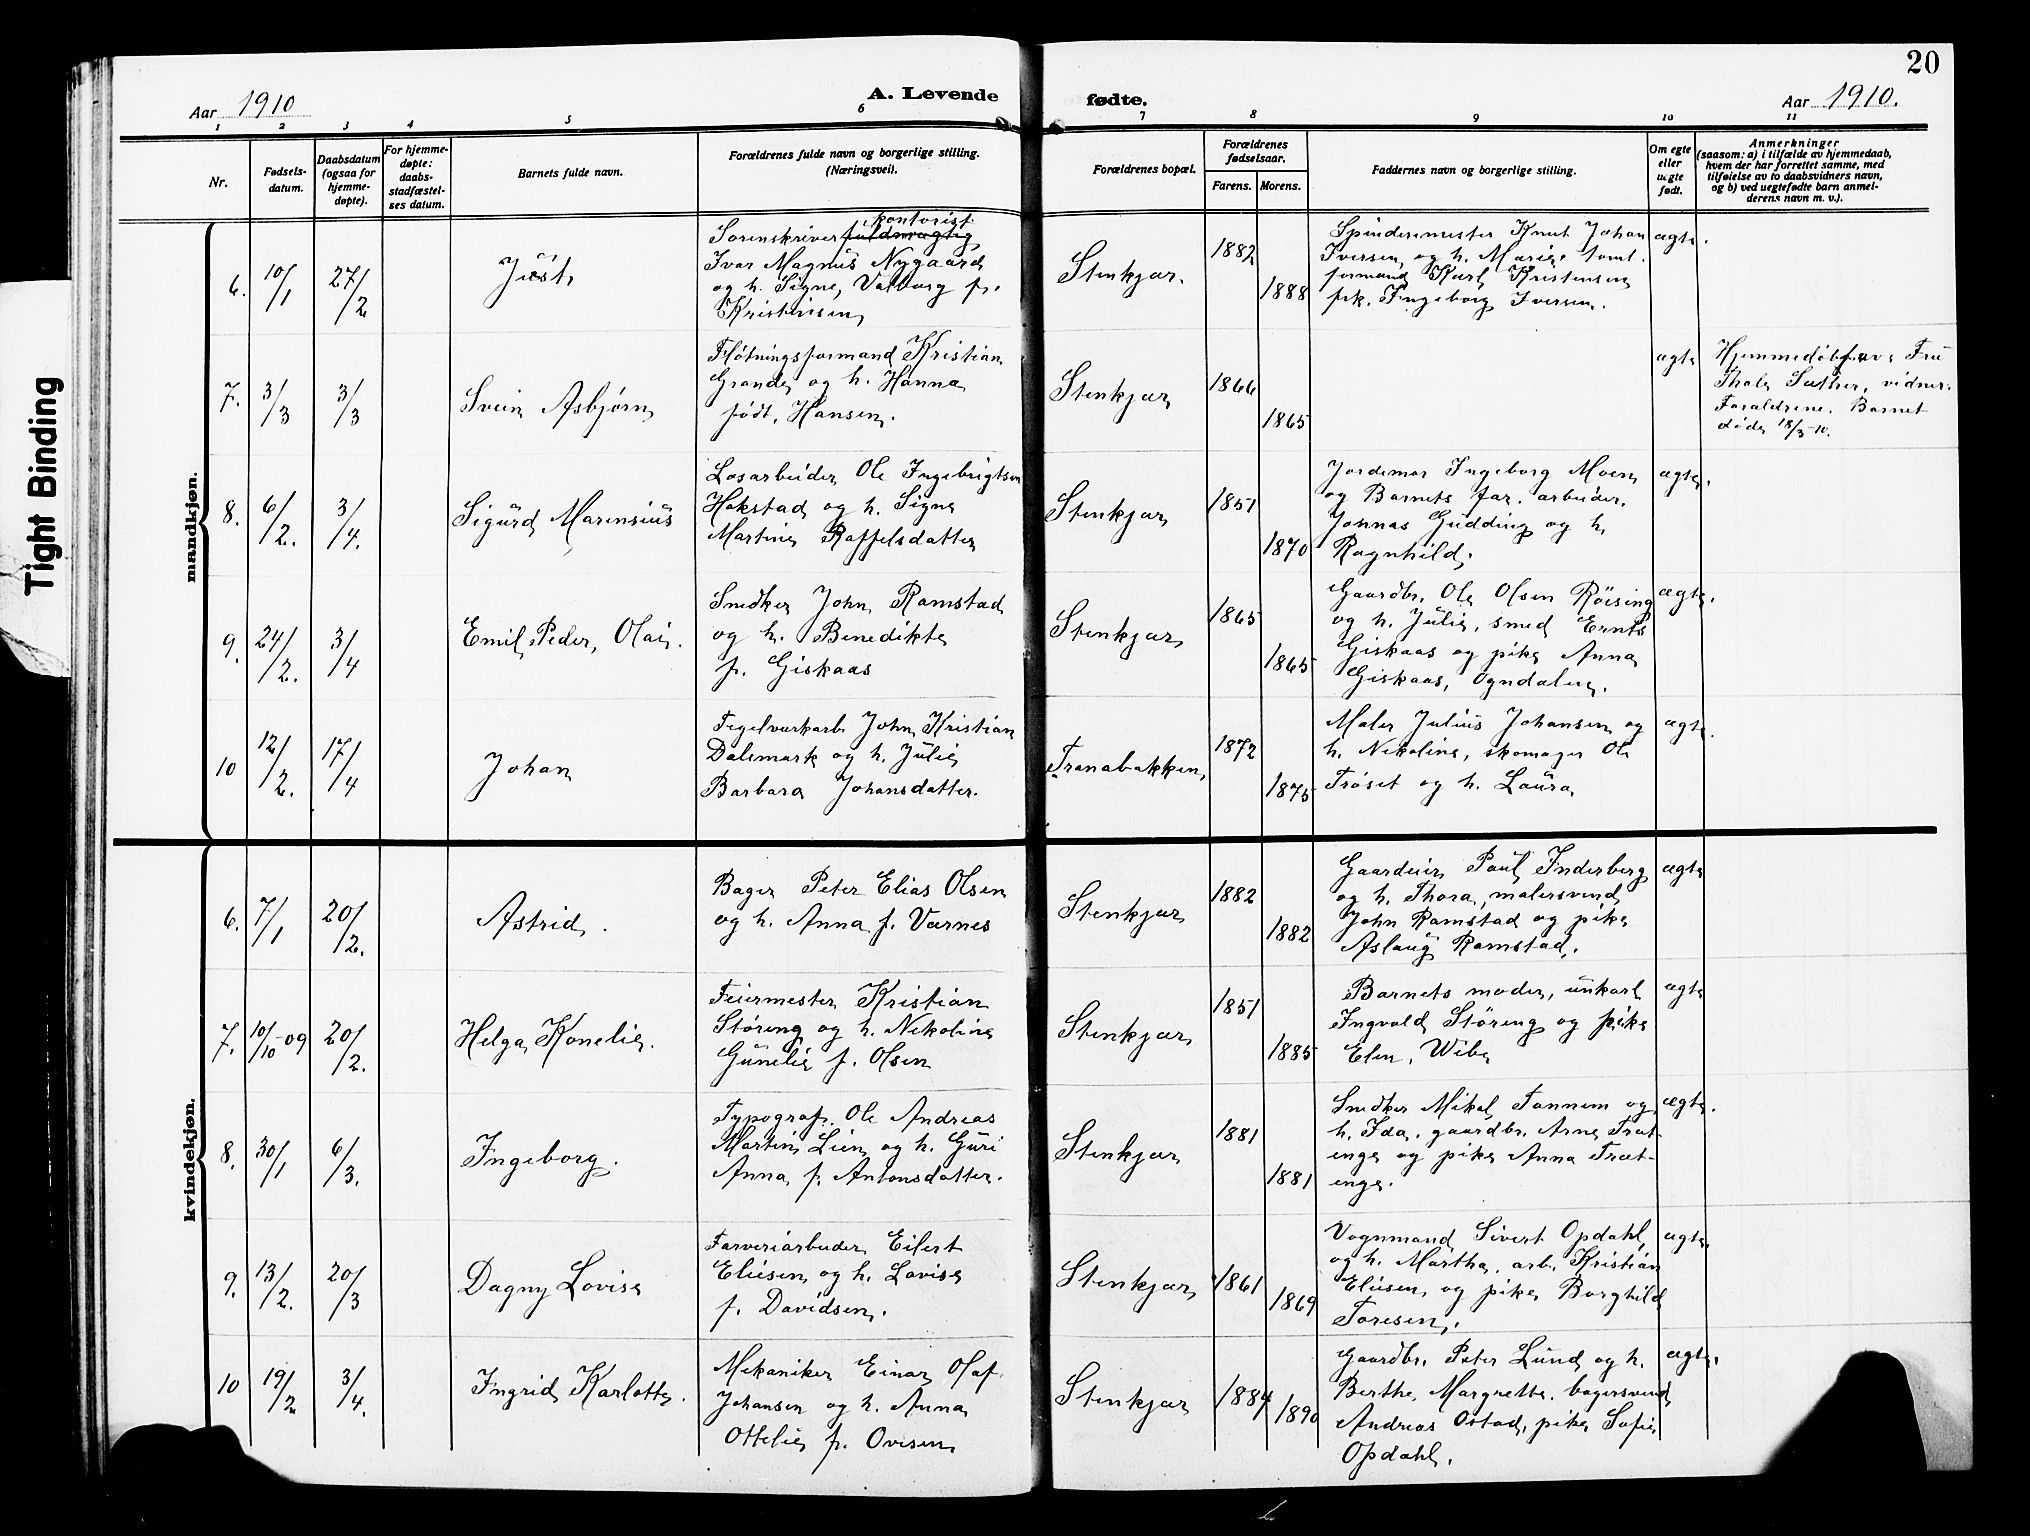 20
Tight Binding
Aar 1910
A. Levende
fødte.
Aar 1910.
1 2 3 4 5 6 7 8 9 10 11
Nr.
Fødsels-
datum.
Daabsdatum
(ogsaa for
hjemme-
døpte).
For hjemme-
døpte:
daabs-
stadfæstel-
ses datum.
Barnets fulde navn.
Forældrenes fulde navn og borgerlige stilling.
(Næringsvei).
Forældrenes bopæl.
Forældrenes
fødselsaar.
Farens. Morens.
Faddernes navn og borgerlige stilling.
Om egte
eller
uegte
født.
Anmerkninger
(saasom: a) i tilfælde av hjemmedaab,
hvem der har forrettet samme, med
tilføielse av to daabsvidners navn,
og b) ved uegtefødte barn anmel-
derens navn m. v.).
mandkjøn.
6. 10/1 27/2
Just
kontorist
Sorenskriverfuldmægtig
Ivar Magnus Nygaard
og h. Signe Valborg f.
Kristensen
Stenkjær.
1882
1888
Spinderimester Knut Johan
Iversen og h. Marie, tomt.
formand Karl Kristensen
frk. Ingeborg Iversen.
ægte.
7. 3/3 3/3
Svein Asbjørn
Fløtningsformand Kristian
Grande og h. Hanna
født Hansen.
Stenkjær
1866
1865
ægte
Hjemmedøbt av Fru
Thale Sæther, vidner:
Forældrene. Barnet
døde 18/3-10.
8. 6/2. 3/4.
Sigurd Marensius
Løsarbeider Ole Ingebrigtsen
Hokstad og h. Signe
Martine Raffelsdatter
Stenkjær
1851
1870
Jordemor Ingeborg Moen
og Barnets far. arbeider
Jonnas Gudding og h.
Ragnhild.
ægte.
9. 24/2. 3/4
Emil Peder Olai.
Snedker John Ramstad
og h. Benedikte
f. Giskaas
Stenkjær
1865
1865
Gaardbr. Ole Olsen Røising
og h. Julie, smed Ernts
Giskaas og pike Anna
Giskaas, Ogndalen.
ægte.
10 12/2. 17/4
Johan
Tegelværkarb. John Kristian
Dalemark og h. Julie
Barbara Johansdatter.
Tranabakken
1872
1875
Maler Julius Johansen og
h. Nekoline, skomager Ole
Trøset og h. Laura
ægte.
kvindekjøn.
6. 7/1 20/2.
Astrid.
Bager Peter Elias Olsen
og h. Anna f. Værnes
Stenkjær
1882
1882
Gaardeier Paul Inderberg
og h. Thora, malersvend
John Ramstad og pike
Aslaug Ramstad.
ægte
7. 10/10-09 20/2.
Helga Konelie.
Feiermester Kristian
Støring og h. Nekoline
Gunelie f. Olsen
Stenkjær
1851
1885
Barnets moder, unkarl
Ingvald Støring og pike
Elen Wibe
ægte
8. 30/1 6/3.
Ingeborg.
Typograf. Ole Andreas
Martin Lien og h. Guri
Anna f. Antonsdatter.
Stenkjær
1881
1881
Snedker Mikal Tannem og
h. Ida. gaardbr. Arne Træt-
enge og pike Anna Træt-
enge.
ægte.
9. 13/2. 20/3
Dagny Lovise
Farveriarbeider Eilert
Eliesen og h. Lovise
f. Davidsen.
Stenkjær
1861
1869
Vognmand Sivert Opdahl
og h. Martha, arb. Kristian
Eliesen og pike Borghild
Toresen.
ægte.
10 19/2 3/4.
Ingrid Karlotte.
Mekaniker Einar Olaf
Johansen og h. Anna
Ottelie f. Ovesen
Stenkjær
1884
1890
Gaardbr. Peter Lund og h.
Berthe Margrette. bagersvend
Andreas Østad, pike Sofie
Opdahl.
ægte.